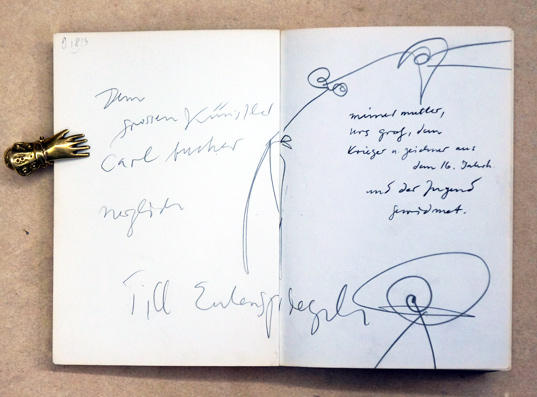 Dem
grossen Künstler
Carl Bucher
herzlich
Till Eulenspiegel
meiner mutter,
urs graf, dem
krieger u. zeichner aus
dem 16. Jahrh.
und der Jugend
gewidmet.